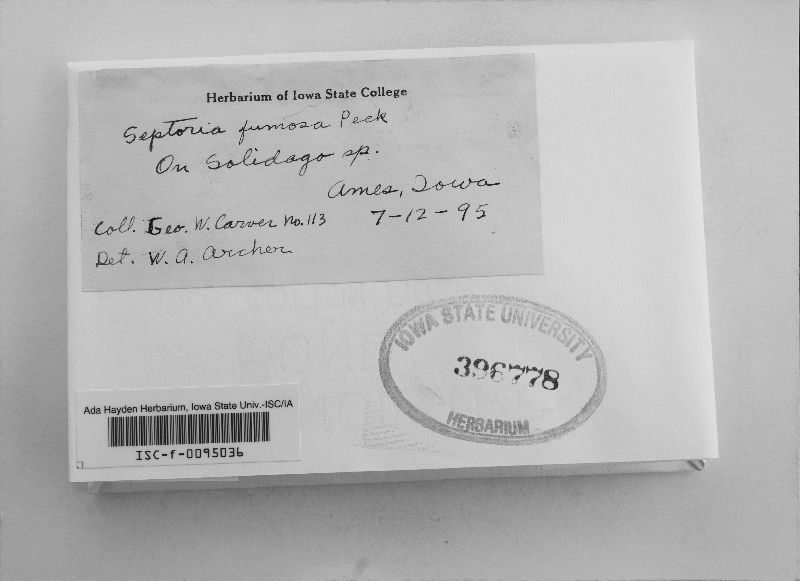 Herbarium of Iowa State College
Septoria fumosa Peck
On Solidago sp.
Ames, Iowa
Coll. Geo. W. Carver No. 113 7-12-95
Det. W. A. Archer
IOWA STATE UNIVERSITY
396778
HERBARIUM
Ada Hayden Herbarium, Iowa State Univ.-ISC/IA
ISC-f-0095036